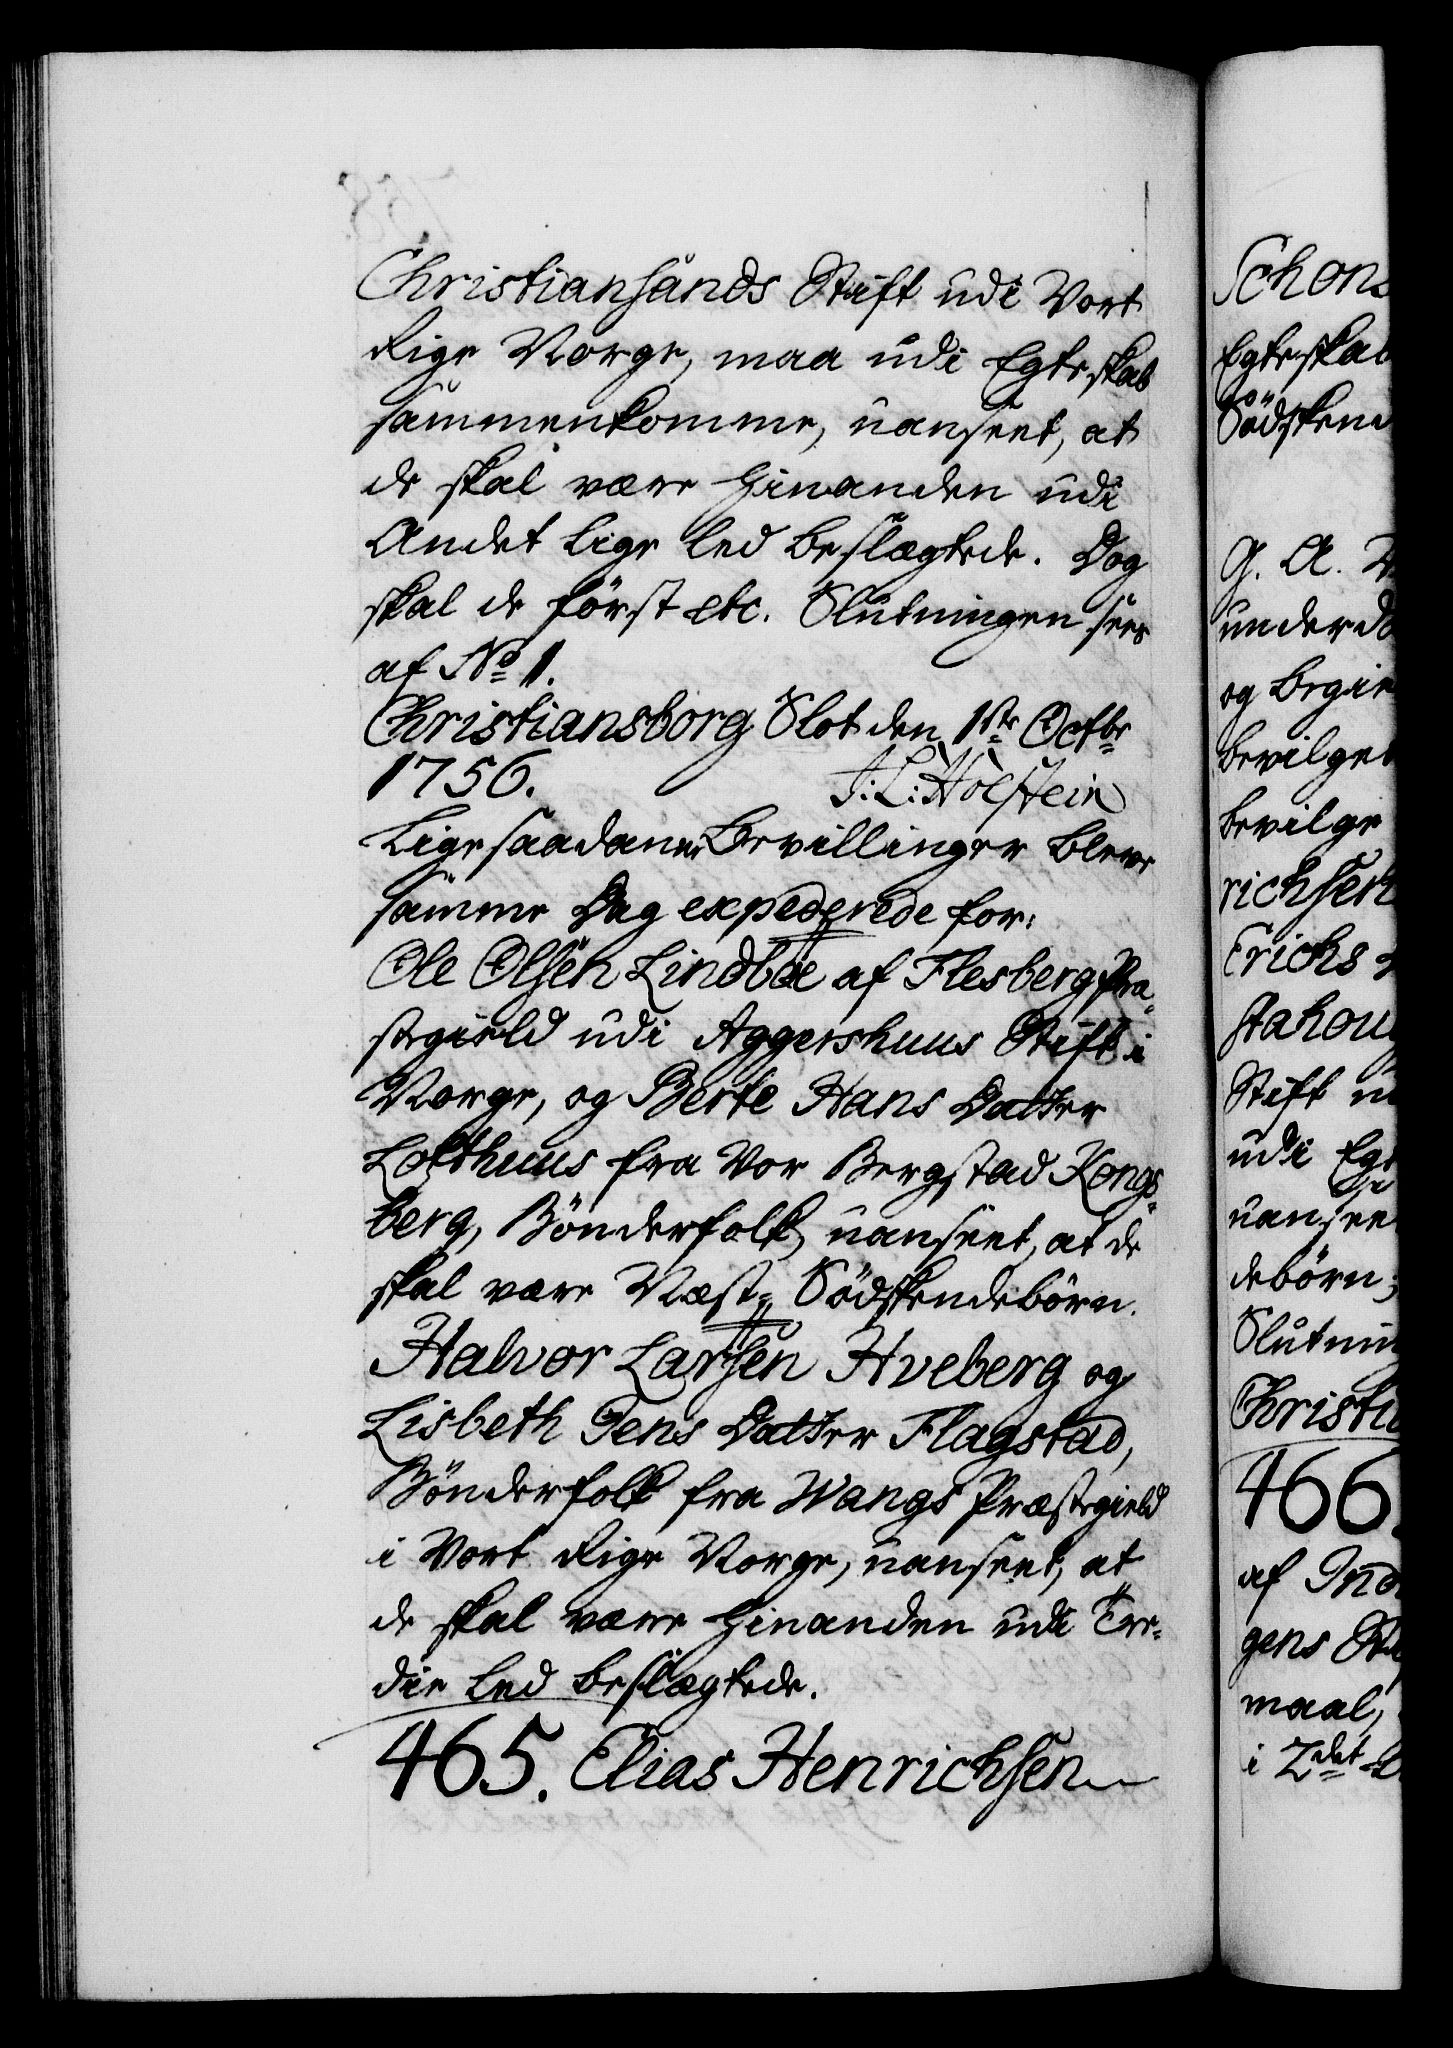 Christiansands Stift udi Vort
Rige Norge, maa udi Egteskab
sammenkomme, uanseet, at
de skal være hinanden udi
Andet lige Led beslægtede. Dog
skal de först etc. Slutningen sees
af No 1.
Christiansborg Slot den 1ste Octbr
1756.
J: L: Holstein
Ligesaadanne Bevillinger bleve
samme Dag expederede for:
Ole Olsen Lindboe af Flesberg Præ-
stegield udi Aggershuus Stift i
Norge, og Berte Hans Datter
Lofthuus fra Vor Bergstad Kongs-
berg, Bönderfolk, uanseet, at de
skal være Næst-Södskendebörn.
Halvor Larsen Hveberg og
Lisbeth Jens Datter Flagstad,
Bönderfolk fra Wangs Præstegield
i Vort Rige Norge, uanseet, at
de skal være hinanden udi Tre-
die Led beslægtede.
465. Elias Henrichsen
Schons
Egteskab
Södsken
G. A.
underd
og begie
bevilget
bevilge
richsen
Erichs
Stift u
udi Egt
uansee
debörn;
Slutnin
Christi
466.
af Ind
gens
maal,
i 2det